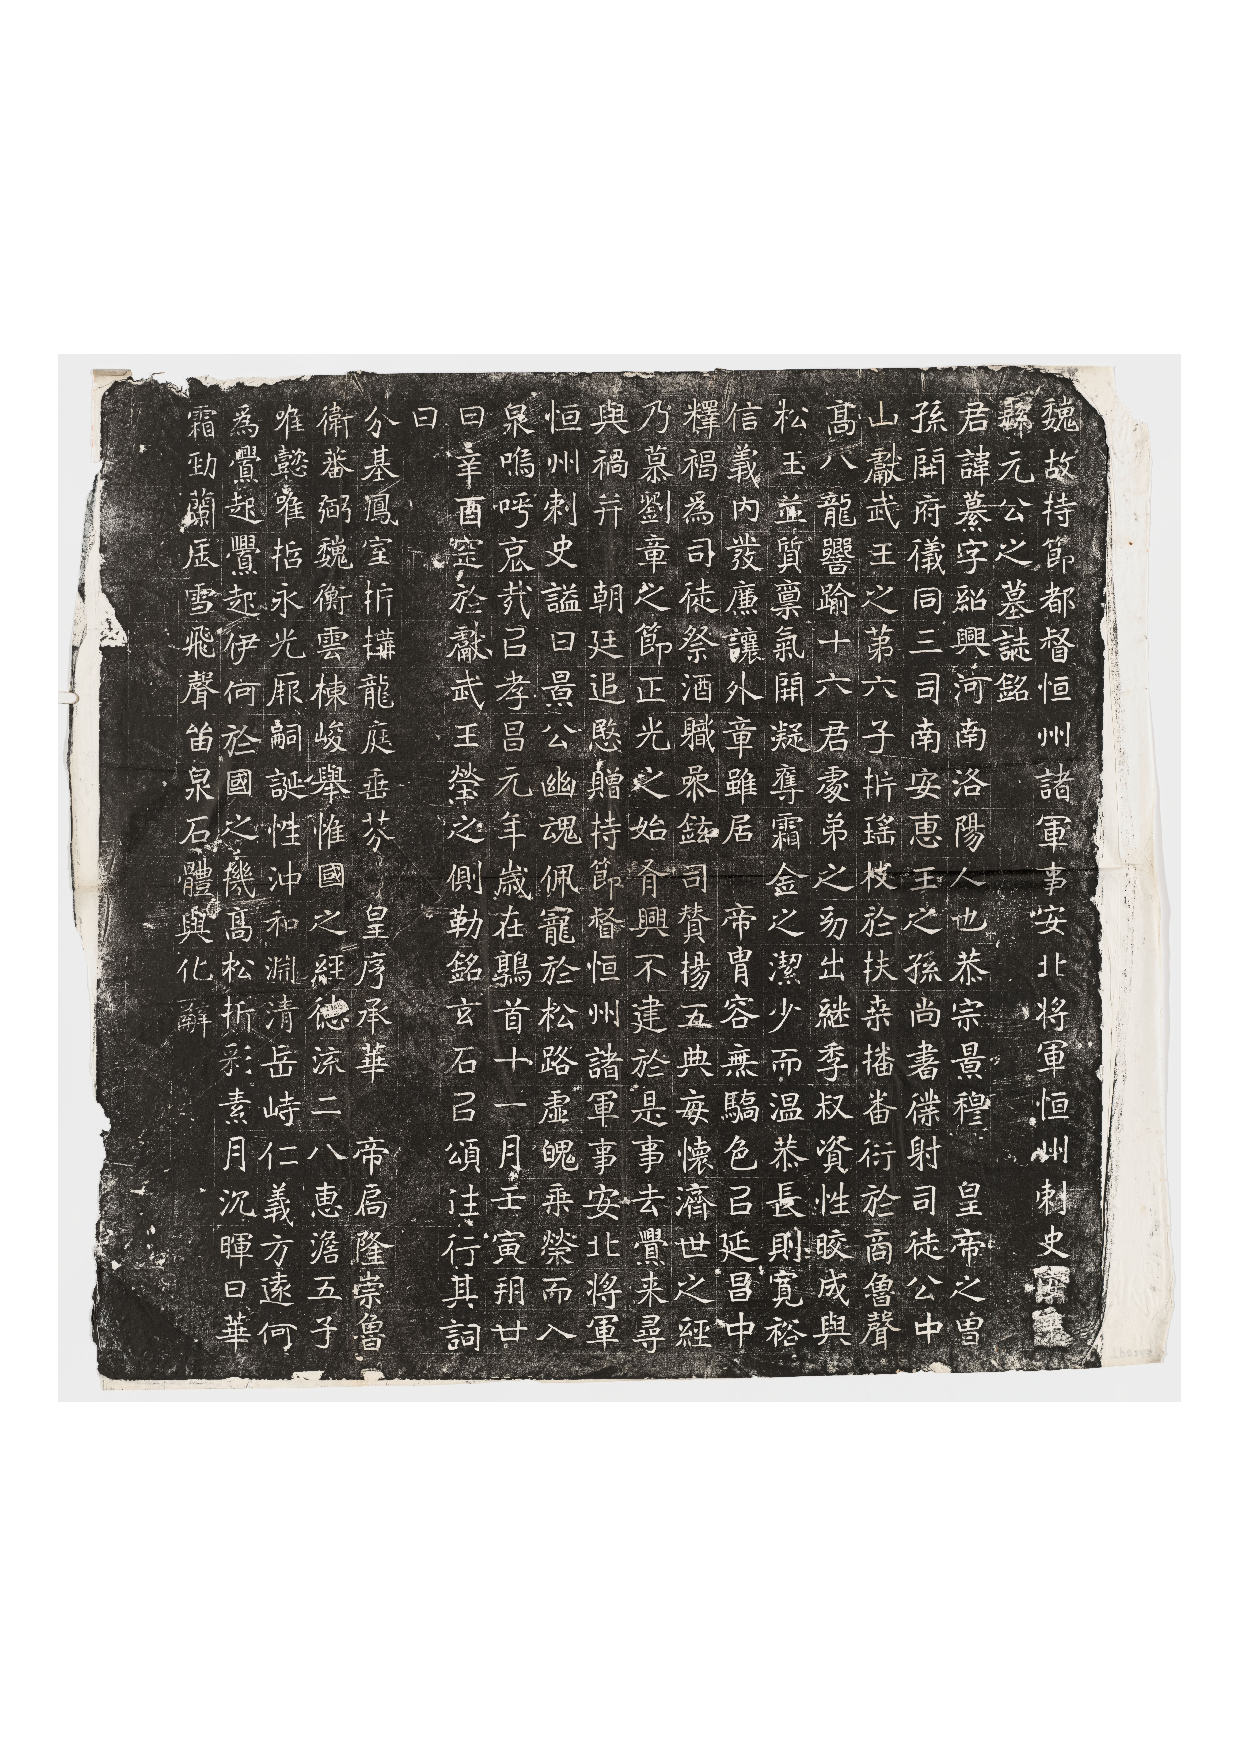 魏故持節都督恒州諸軍事安北将軍恒州刺史
縣元公之墓誌銘
君諱纂字紹興河南洛陽人也恭宗景穆皇帝之曽
孫開府儀同三司南安恵王之孫尚書僕射司徒公中
山獻武王之第六子折瑤枝於扶桒播番衍於商魯聲
髙八龍響踰十六君處弟之幼出継季叔資性皎成與
松玉並質禀氣開凝奪霜金之潔少而温恭長則寛裕
信義内發廉讓外章雖居帝胄容無驕色㠯延昌中
釋褐為司徒祭酒職叅鉉司賛揚五典每懷濟世之經
乃慕劉章之節正光之始胥興不建於是事去舋来尋
與禍并朝廷追愍贈持節督恒州諸軍事安北将軍
恒州刺史謚曰景公幽魂佩寵於松路虛魄乘榮而入
泉嗚呼哀㦲㠯孝昌元年歳在鶉首十一月壬寅朔廿
日辛酉窆於獻武王塋之側勒銘玄石㠯頌往行其詞
曰
分基鳳室折蘤龍庭垂芬皇序承華帝扃隆崇魯
衛蕃弼魏衡雲棟峻舉惟國之經德流二八恵澹五子
唯懿唯哲永光厥嗣誕性沖和淵清岳峙仁義方遠何
為舋起舋起伊何於國之機髙松折彩素月沉暉日華
霜劲蘭居雪飛聲笛泉石體與化辭